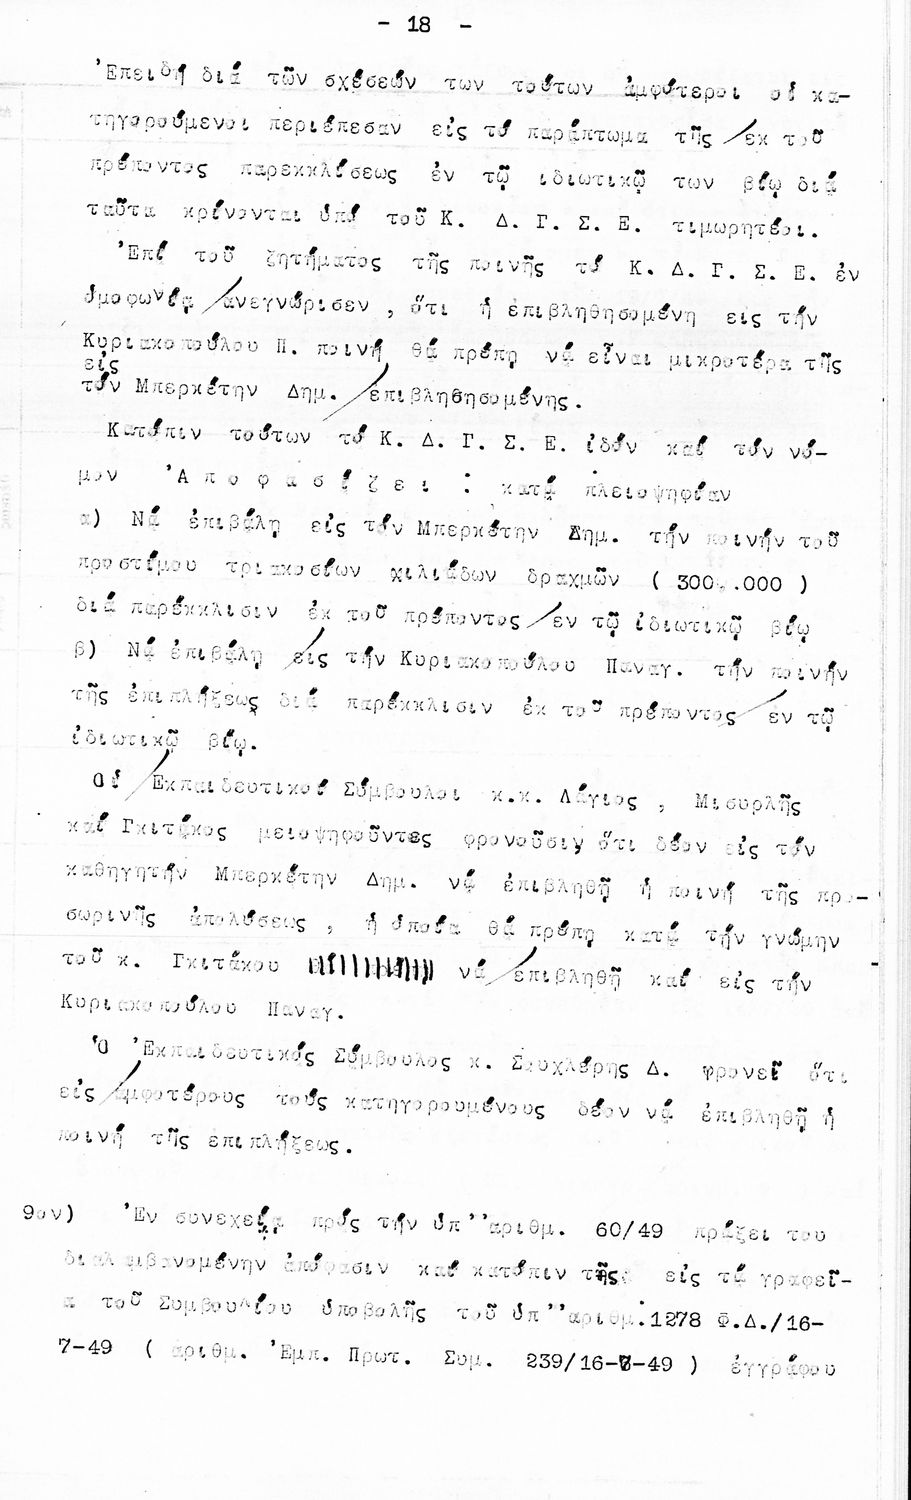 - 18 -
Ἐπειδή διά τῶν σχέσεών των τούτων ἀμφότεροι οἱ κα-
τηγορούμενοι περιέπεσαν εἰς τό παράπτωμα τῆς ἐκ τοῦ
πρέποντος παρεκκλίσεως ἐν τῷ ἰδιωτικῷ των βίῳ διά
ταῦτα κρίνονται ὑπό τοῦ Κ. Δ. Γ. Σ. Ε. τιμωρητέοι.
Ἐπί τοῦ ζητήματος τῆς ποινῆς τό Κ. Δ. Γ. Σ. Ε. ἐν
ὁμοφωνίᾳ ἀνεγνώρισεν , ὅτι ἡ ἐπιβληθησομένη εἰς τήν
Κυριακοπούλου Π. ποινή θά πρέπῃ νά εἶναι μικροτέρα τῆς
εἰς
τόν Μπερκέτην Δημ. ἐπιβληθησομένης.
Κατόπιν τούτων τό Κ. Δ. Γ. Σ. Ε. ἰδόν καί τόν νό-
μον Ἀ π ο φ α σ ί ζ ε ι : κατά πλειοψηφίαν
α) Νά ἐπιβάλῃ εἰς τόν Μπερκέτην Δημ. τήν ποινήν τοῦ
προστίμου τριακοσίων χιλιάδων δραχμῶν ( 300.000 )
διά παρέκκλισιν ἐκ τοῦ πρέποντος ἐν τῷ ἰδιωτικῷ βίῳ
β) Νά ἐπιβάλῃ εἰς τήν Κυριακοπούλου Παναγ. τήν ποινήν
τῆς ἐπιπλήξεως διά παρέκκλισιν ἐκ τοῦ πρέποντος ἐν τῷ
ἰδιωτικῷ βίῳ.
Οἱ Ἐκπαιδευτικοί Σύμβουλοι κ.κ. Λάγιος , Μισυρλῆς
καί Γκιτάκος μειοψηφοῦντες φρονοῦσιν ὅτι δέον εἰς τόν
καθηγητήν Μπερκέτην Δημ. νά ἐπιβληθῇ ἡ ποινή τῆς προ-
σωρινῆς ἀπολύσεως , ἡ ὁποία θά πρέπῃ κατά τήν γνώμην
τοῦ κ. Γκιτάκου νά ἐπιβληθῇ καί εἰς τήν
Κυριακοπούλου Παναγ.
Ὁ Ἐκπαιδευτικός Σύμβουλος κ. Σουχλέρης Δ. φρονεῖ ὅτι
εἰς ἀμφοτέρους τούς κατηγορουμένους δέον νά ἐπιβληθῇ ἡ
ποινή τῆς ἐπιπλήξεως.
9ον) Ἐν συνεχείᾳ πρός τήν ὑπ' ἀριθμ. 60/49 πράξει του
διαλαμβανομένην ἀπόφασιν καί κατόπιν τῆς εἰς τά γραφεῖ-
α τοῦ Συμβουλίου ὑποβολῆς τοῦ ὑπ' ἀριθμ. 1278 Φ.Δ./16-
7-49 ( ἀριθμ. Ἐμπ. Πρωτ. Συμ. 239/16-8-49 ) ἐγγράφου